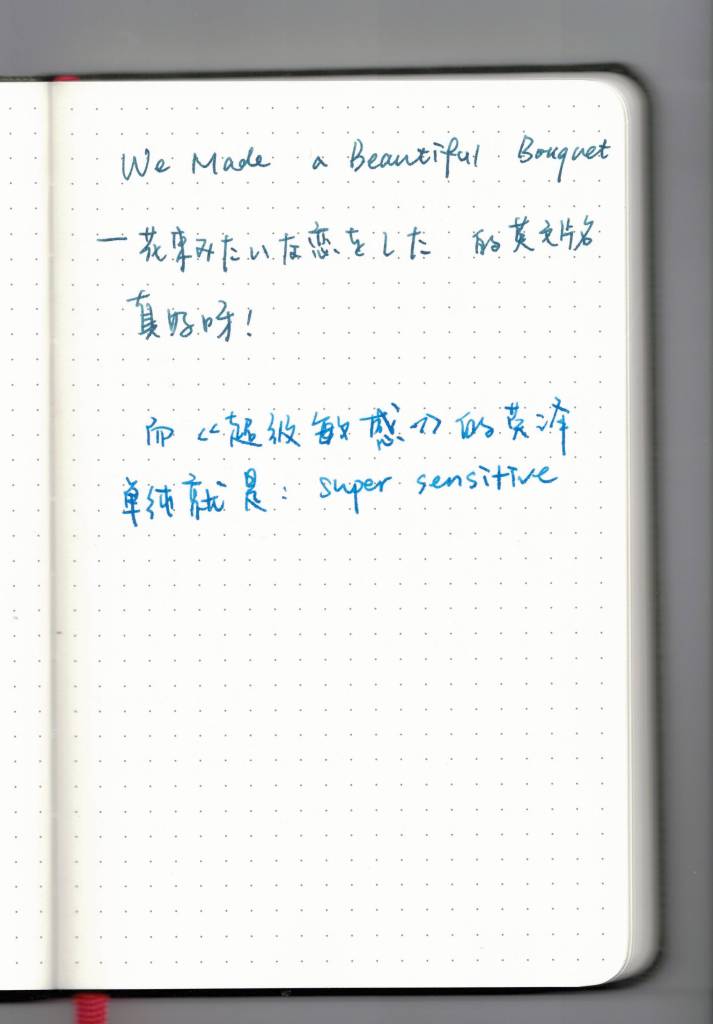 We Made a Beautiful Bouquet
一花束みたいな恋をした 的英文片名
真好呀！
而《超级敏感》的英译
单纯就是：super sensitive